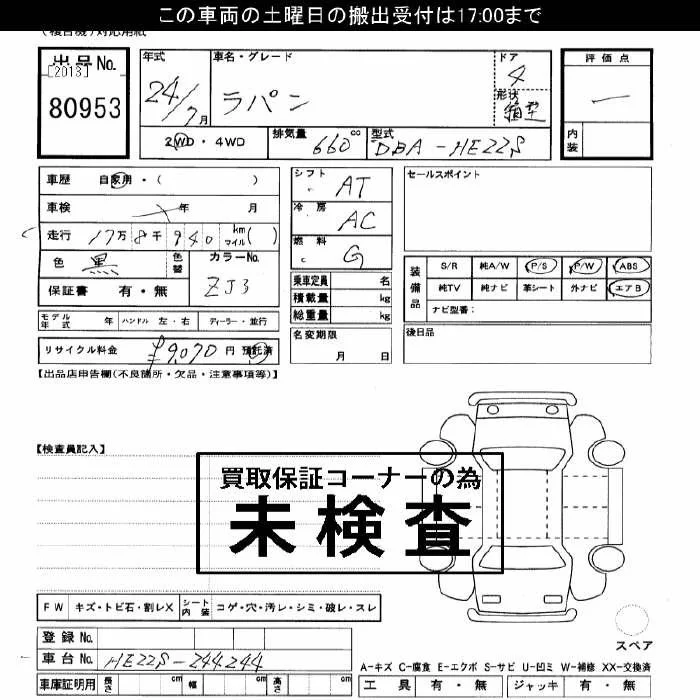 この車両の土曜日の搬出受付は17:00まで
(複合機)対応用紙
出品No. [2013] 80953
年式 24/7月
車名・グレード ラパン
ドア 4
形状 箱型
評価点 ー
内装
2WD・4WD
排気量 660cc
型式 DBA-HE22S
車歴 自家用・( )
車検 年 月
走行 17万8千940 km マイル( )
色 黒 色替 カラーNo. ZJ3
保証書 有・無
シフト AT
冷房 AC
燃料 G
乗車定員 名
積載量 kg
総重量 kg
セールスポイント
装備品
S/R 純A/W P/S P/W ABS
純TV 純ナビ 革シート 外ナビ エアB
ナビ型番:
モデル年式 年 ハンドル 左・右 ディーラー・並行
名変期限 月 日
後日品
リサイクル料金 ¥9,070円 預託済
【出品店申告欄(不良箇所・欠品・注意事項等)】
【検査員記入】
買取保証コーナーの為
未検査
FW キズ・トビ石・割レX シート内装 コゲ・穴・汚レ・シミ・破レ・スレ
登録No.
車台No. HE22S-244244
車庫証明用 長さ cm 幅 cm 高さ cm
スペア
A-キズ C-腐食 E-エクボ S-サビ U-凹ミ W-補修 XX-交換済
工具 有・無 ジャッキ 有・無